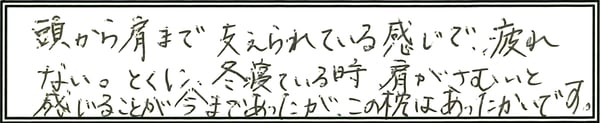 頭から肩まで支えられている感じで、疲れ
ない。とくに、冬寝ている時 肩がさむいと
感じることが今まであったが、この枕はあったかいです。